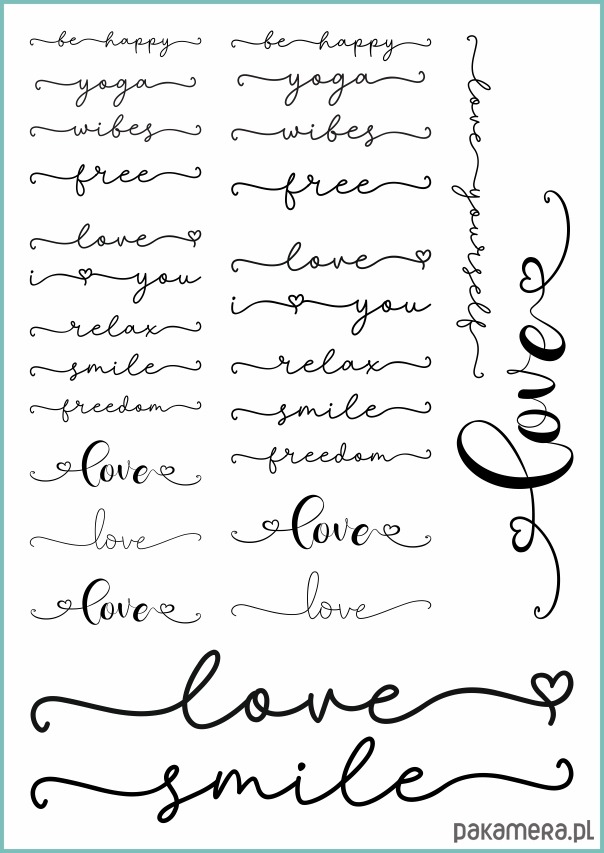 be happy
yoga
wibes
free
love
i you
relax
smile
freedom
love
love
love
be happy
yoga
wibes
free
love
i you
relax
smile
freedom
love
love
love yourself
love
love
smile
pakamera.pl